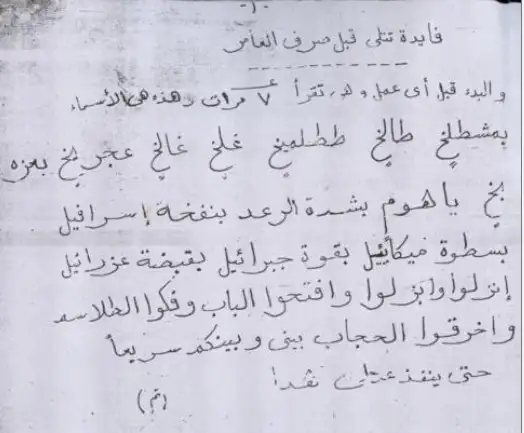 -١-
فايدة تتلى قبل صرف العامر
والبدء قبل أى عمل وهو تقرأ ٧ مرات وهذه هى الأسماء
بمشطلخ طالخ غلخ غالخ عجريخ بعزه
بخ ياهوم بشدة الرعد بنفخة إسرافيل
بسطوة ميكائيل بقوة جبرائيل بقبضة عزرائيل
إنزلوا وابزلوا وافتحوا الباب وفكوا الطلاسم
واخرقوا الحجاب بينى وبينكم سريعاً
حتى ينفذ
(تم)